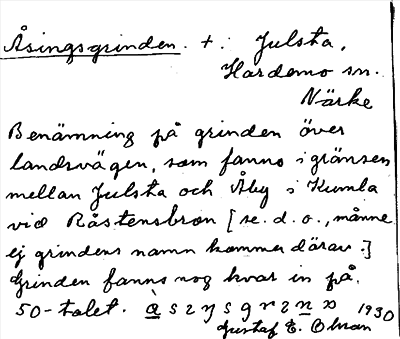 Åsingsgrinden. +: Julsta,
Hardemo sn.
Närke
Benämning på grinden över
landsvägen, som fanns i gränsen
mellan Julsta och Åby i Kumla
vid Råstensbron [se. d. o., månne
ej grindens namn kommer därav.]
Grinden fanns nog kvar in på
50-talet.
1930
Gustaf E. Olsson